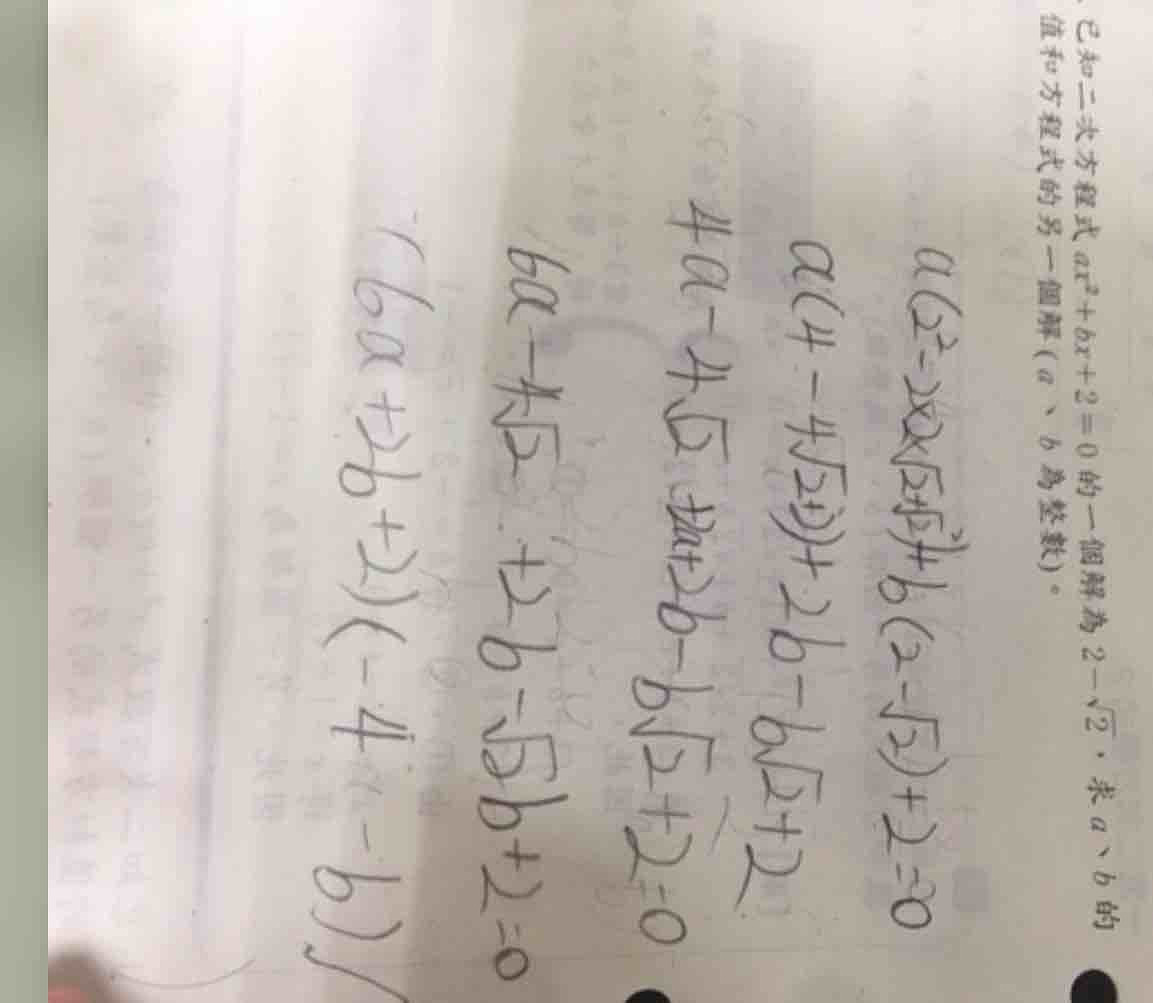 已知二次方程式 ax²+bx+2=0 的一個解為 2-√2,求 a、b 的
值和方程式的另一個解(a、b 為整數)。
a(2²-2×2×√2+√2²)+b(2-√2)+2=0
a(4-4√2+2)+2b-b√2+2
4a-4√2+2a+2b-b√2+2=0
6a-4√2+2b-√2b+2=0
(6a+2b+2)(-4a-b)√